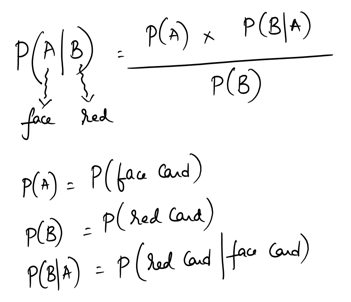 P(A|B) = P(A) × P(B|A) / P(B)
face red
P(A) = P(face card)
P(B) = P(red card)
P(B|A) = P(red card | face card)